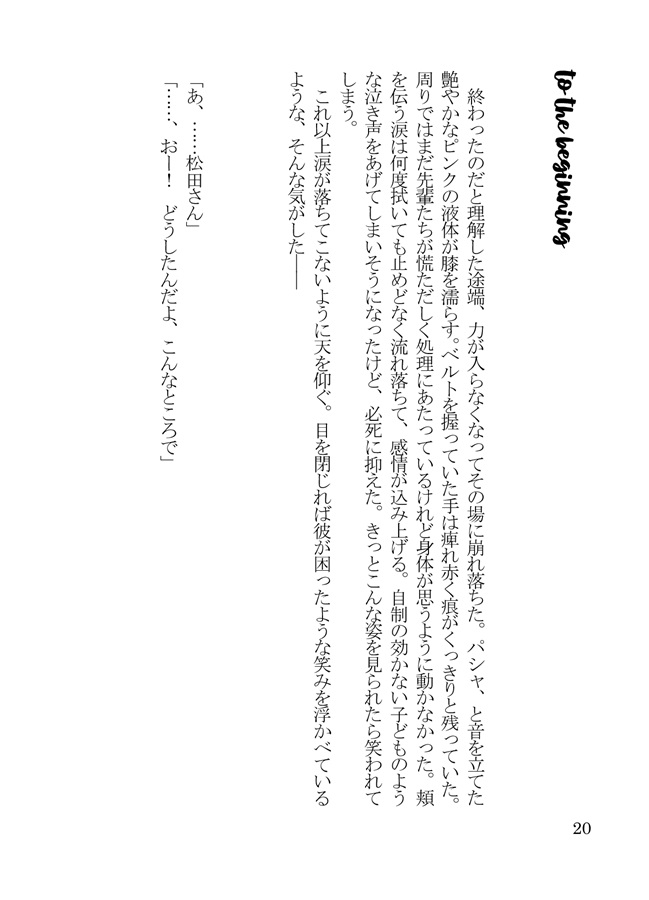 to the beginning
　終わったのだと理解した途端、力が入らなくなってその場に崩れ落ちた。パシャ、と音を立てた
艶やかなピンクの液体が膝を濡らす。ベルトを握っていた手は痺れ赤く痕がくっきりと残っていた。
周りではまだ先輩たちが慌ただしく処理にあたっているけれど身体が思うように動かなかった。頬
を伝う涙は何度拭いても止めどなく流れ落ちて、感情が込み上げる。自制の効かない子どものよう
な泣き声をあげてしまいそうになったけど、必死に抑えた。きっとこんな姿を見られたら笑われて
しまう。
　これ以上涙が落ちてこないように天を仰ぐ。目を閉じれば彼が困ったような笑みを浮かべている
ような、そんな気がした――
「あ、……松田さん」
「……、おー！　どうしたんだよ、こんなところで」
20